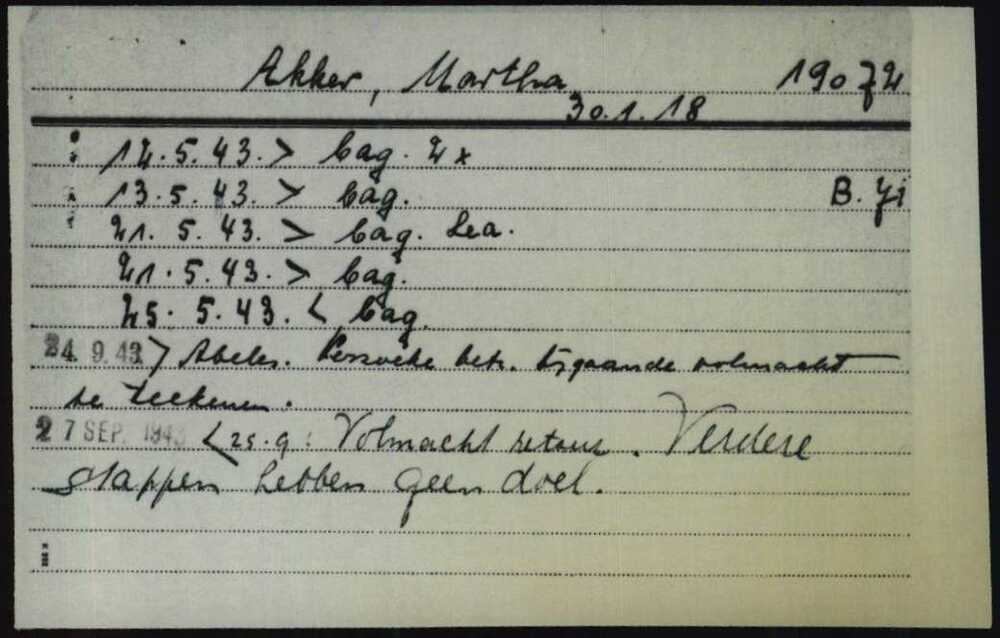 Akker, Martha 19072
30.1.18
12.5.43. > bag. 2x
13.5.43. > bag. B. Ji
21.5.43. > bag. Lea.
21.5.43. > bag.
25.5.43. < bag.
24.9.43. > Abeles. Verzoeke betr. bijgaande volmacht
te teekenen.
27 SEP. 1943 < 25.9: Volmacht retour. Verdere
stappen hebben geen doel.